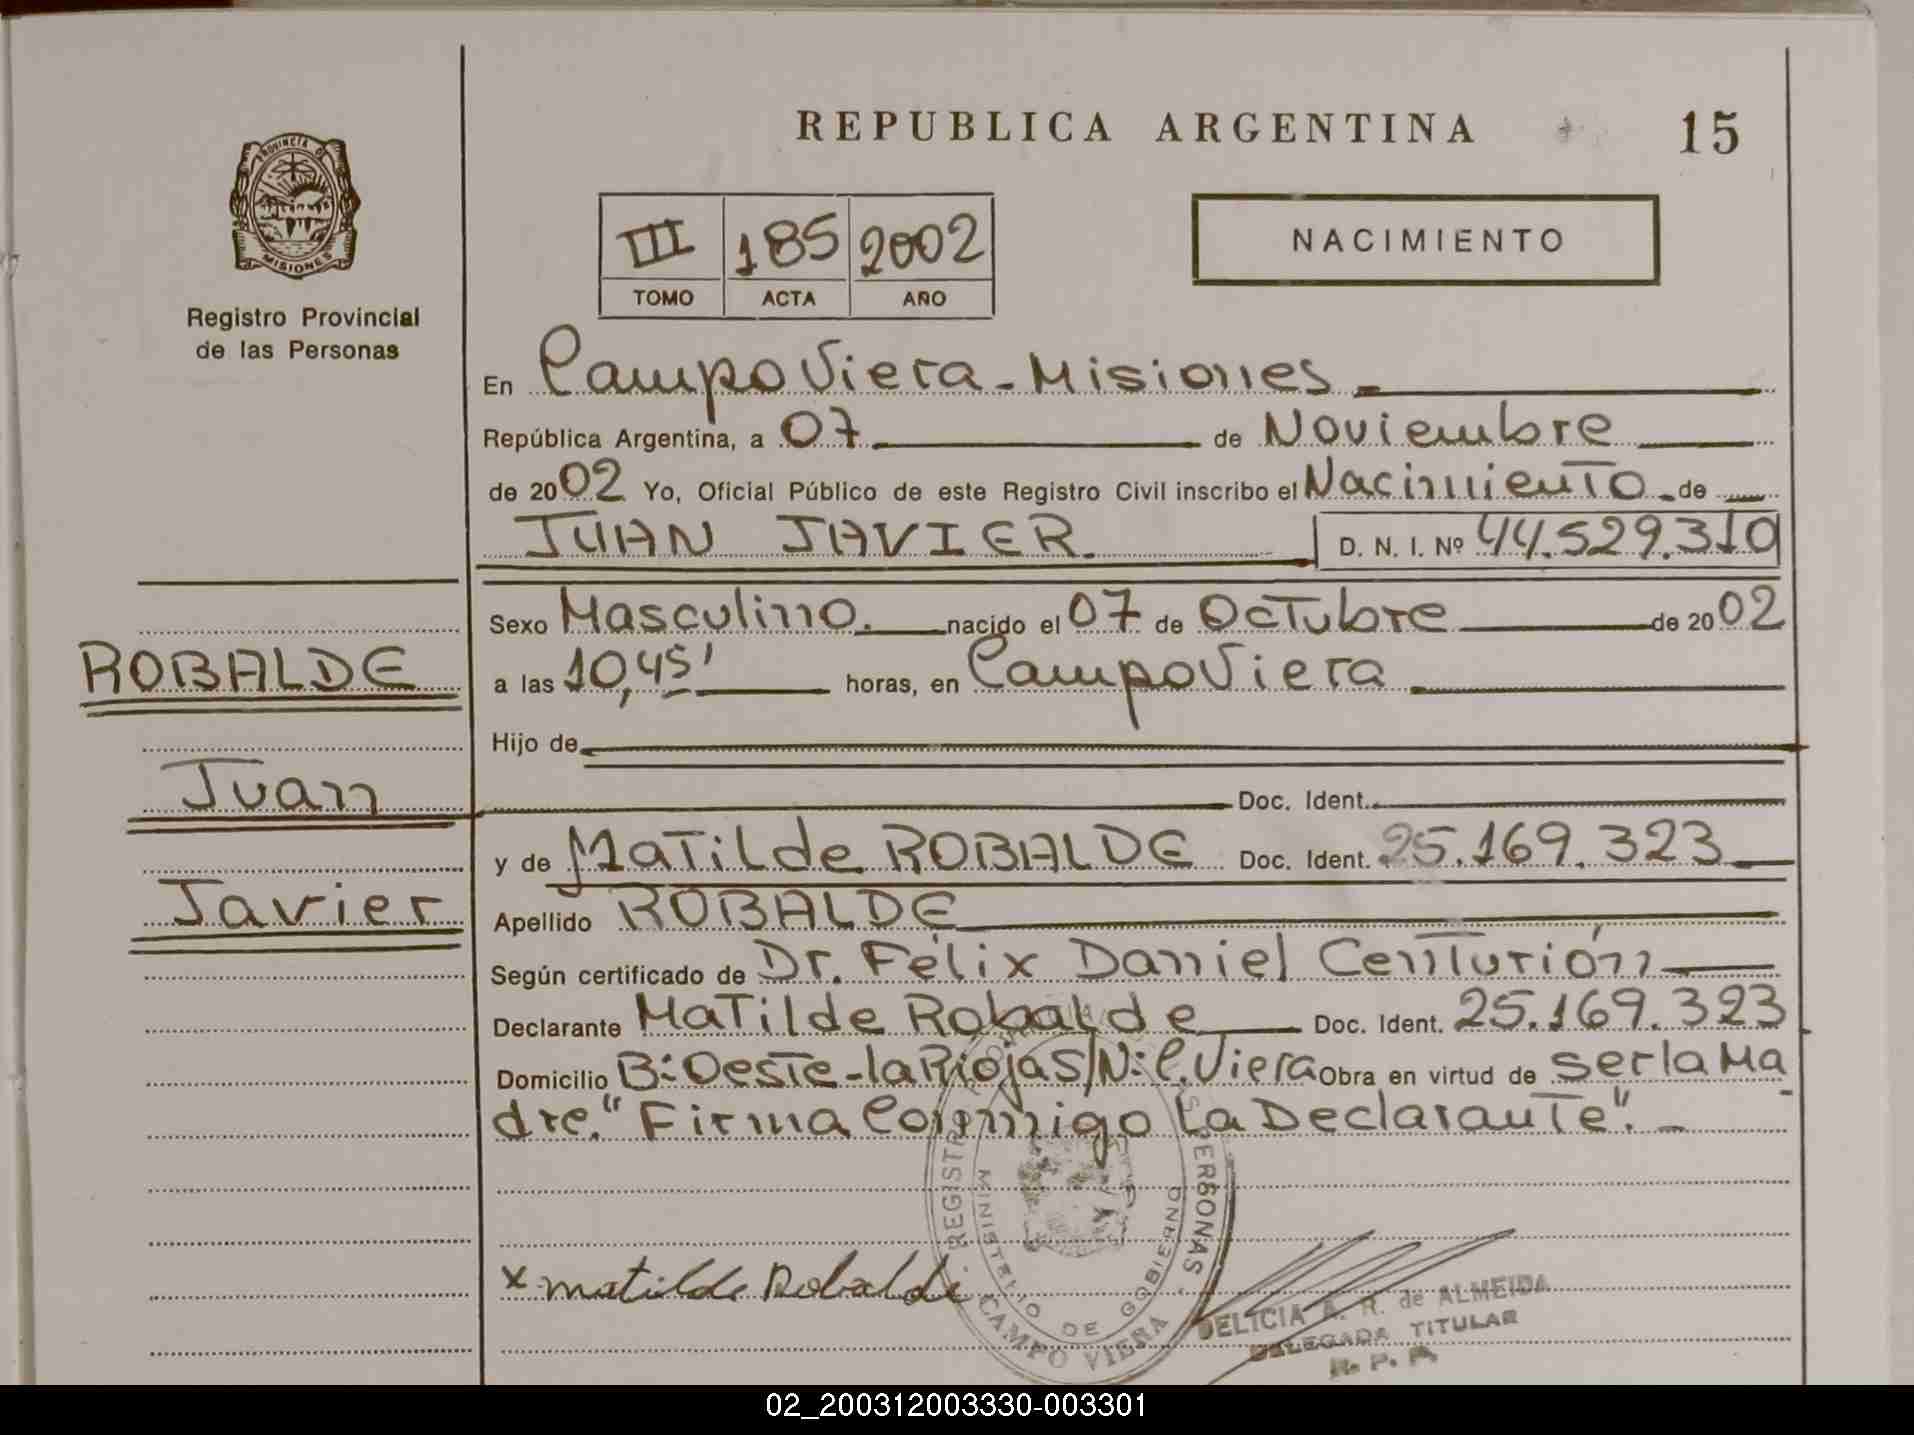 REPUBLICA ARGENTINA
15
PROVINCIA DE
MISIONES
Registro Provincial
de las Personas
III 185 2002
TOMO ACTA AÑO
NACIMIENTO
En Campo Viera - Misiones
República Argentina, a 07 de Noviembre
de 2002 Yo, Oficial Público de este Registro Civil inscribo el Nacimiento de
JUAN JAVIER. D. N. I. Nº 44.529.310
Sexo Masculino. nacido el 07 de Octubre de 2002
a las 10,45' horas, en Campo Viera
Hijo de
Doc. Ident.
y de Matilde ROBALDE Doc. Ident. 25.169.323
Apellido ROBALDE
Según certificado de Dr. Félix Daniel Centurión
Declarante Matilde Robalde Doc. Ident. 25.169.323
Domicilio B: Oeste - la Rioja S/N: C. Viera Obra en virtud de ser la Ma
dre. "Firma Conmigo La Declarante".
ROBALDE
Juan
Javier
x matilde Robalde
REGISTRO PERSONAS
MINISTERIO DE GOBIERNO
CAMPO VIERA
DELICIA A. R. de ALMEIDA
DELEGADA TITULAR
R. P. P.
02_200312003330-003301